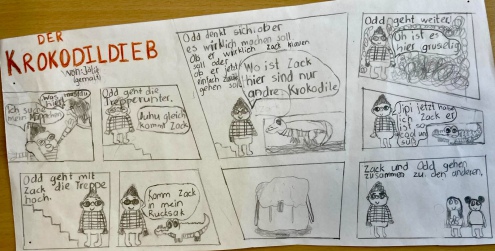 DER
KROKODILDIEB
von: Jalil
Ich suche
mein
Was
hier
Odd geht die
Treppe runter.
Juhu gleich
kommt Zack
Odd denkt sich ober
es wirklich machen soll
Ob er wirklich Zack klauen
soll oder
ob er jetzt
einfach
gehen soll
Wo ist Zack
hier sind nur
andre Krokodile
Odd geht weiter
Oh ist es
hier gruselig
Jipi jetzt habe
ich Zack er
ist so
cool und
süß
Odd geht mit
Zack die Treppe
hoch.
Komm Zack
in mein
Rucksak
Zack und Odd gehen
zusammen zu den anderen.